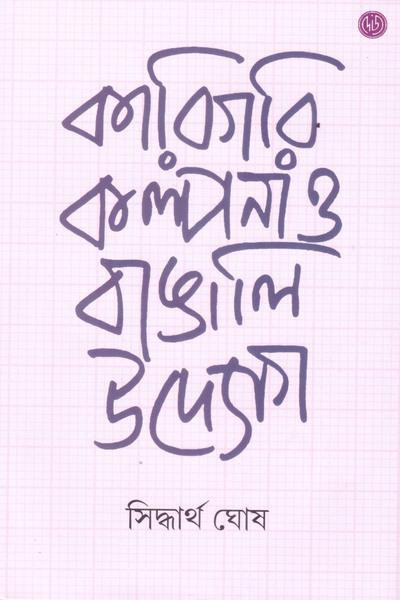 কারিগরি
কল্পনা ও
বাঙালি
উদ্যোগ
সিদ্ধার্থ ঘোষ